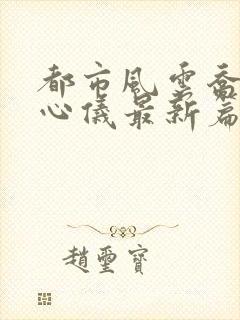 都市風雲喬
心儀最新篇
趙璽寶